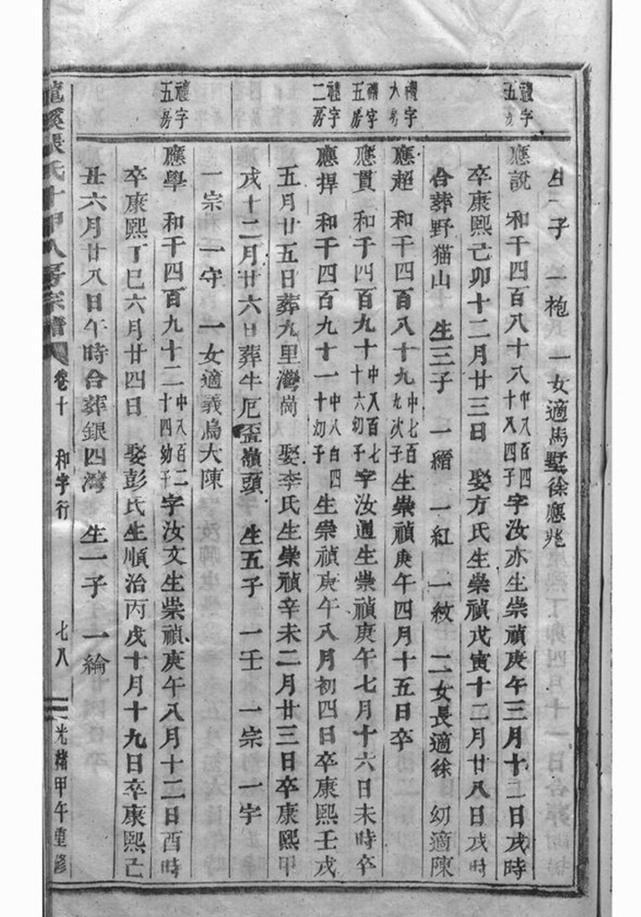 生一子　一袍　一女適馬墅徐應兆
禮字五房
應說　和千四百八十八中八百四十八四子字汝亦生崇禎庚午三月十二日戌時
卒康熙己卯十二月廿三日　娶方氏生崇禎戊寅十二月廿八日戌時
合葬野猫山　生三子　一縉　一紅　一紋　二女長適徐　幼適陳
禮字大房
應超　和千四百八十九中七百九次子生崇禎庚午四月十五日卒
禮字五房
應貫　和千四百九十中八百七十六幼子字汝通生崇禎庚午七月十六日未時卒
禮字二房
應捍　和千四百九十一中八百四十幼子生崇禎庚午八月初四日卒康熙壬戌
五月廿五日葬九里灣崗　娶李氏生崇禎辛未二月廿三日卒康熙甲
戌十二月廿六日葬牛厄歪嶺頭　生五子　一壬　一宗　一字
一宗　一守　一女適義烏大陳
禮字五房
應學　和千四百九十二中八百二十四幼子字汝文生崇禎庚午八月十二日酉時
卒康熙丁巳六月廿四日　娶彭氏生順治丙戌十月十九日卒康熙己
丑六月廿八日午時合葬銀四灣　生一子　一綸
龍溪張氏十甲八房宗譜　卷十　和字行　七八　光緒甲午重修